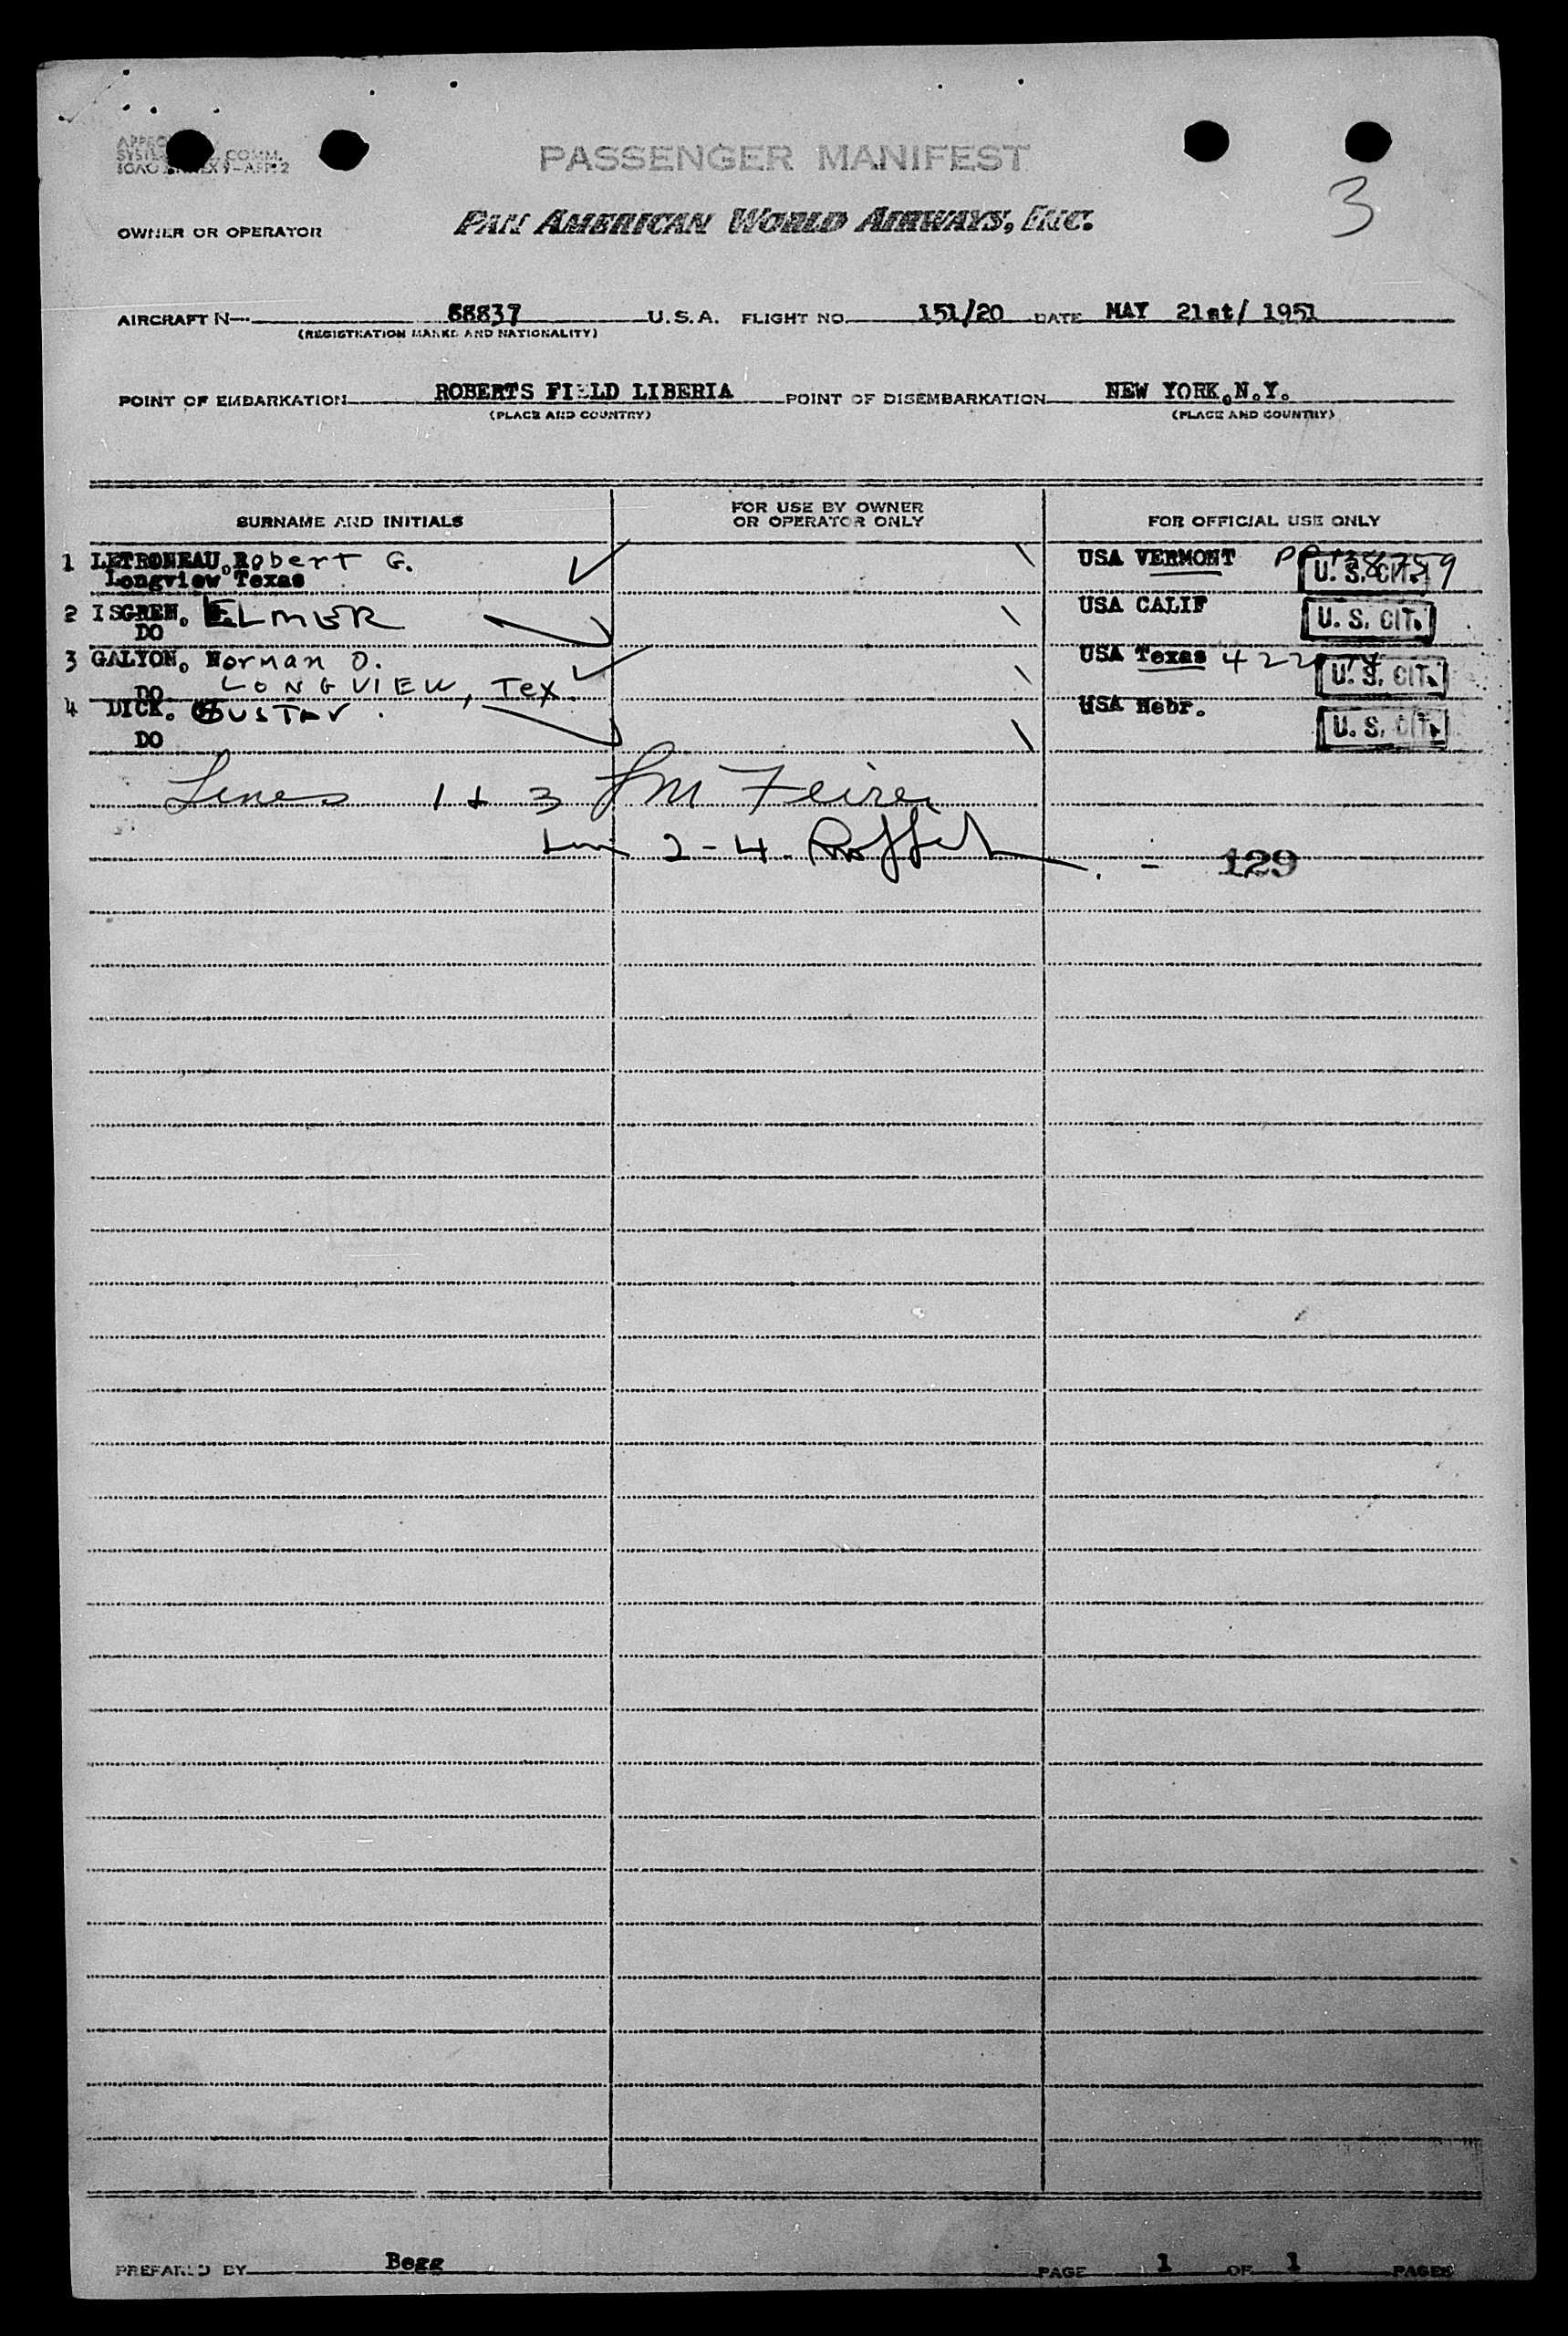 COMM.
PASSENGER MANIFEST
3
OWNER OR OPERATOR PAN AMERICAN WORLD AIRWAYS, INC.
AIRCRAFT N- 88837 U.S.A. FLIGHT NO. 151/20 DATE MAY 21st/ 1951
(REGISTRATION MARKS AND NATIONALITY)
POINT OF EMBARKATION ROBERTS FIELD LIBERIA POINT OF DISEMBARKATION NEW YORK,N.Y.
(PLACE AND COUNTRY) (PLACE AND COUNTRY)
SURNAME AND INITIALS FOR USE BY OWNER OR OPERATOR ONLY FOR OFFICIAL USE ONLY
1 LETRONEAU,Robert G. USA VERMONT U. S. CIT.
Longview Texas
2 ISGREN, ELMER USA CALIF U. S. CIT.
DO
3 GALYON, Norman O. USA Texas U. S. CIT.
DO LONGVIEW, Tex.
4 DICK, GUSTAV. USA Nebr. U. S. CIT.
DO
Lines 1 + 3
2-4 - 129
PREPARED BY Begg PAGE 1 OF 1 PAGES